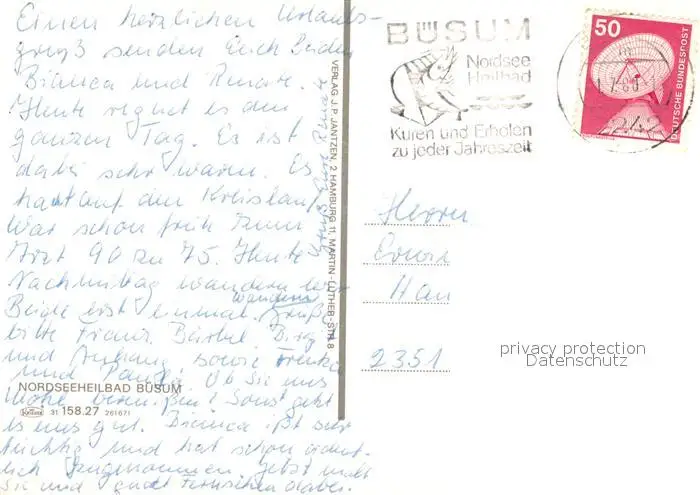 Einen herzlichen Urlaubs-
gruß senden Euch beiden
Bianca und Renate.
Heute regnet es den
ganzen Tag. Es ist
dabei sehr warm. Es
haut auf den Kreislauf
War schon früh zum
Arzt 90 zu 75. Heute
Nachmittag wandern wir
Beide erst einmal. Grüße
bitte Franz, Bärbel, Birgit
und sowie
und Ob Sie uns
Sonst geht
es uns gut. Bianca ißt sehr
tüchtig und hat schon ordent-
lich zugenommen. Jetzt malt
Sie und guckt Fernsehen dabei.
NORDSEEHEILBAD BÜSUM
Krüger 31 158.27 261671
VERLAG J. P. JANTZEN, 2 HAMBURG 11, MARTIN-LUTHER-STR. 8
BÜSUM
Nordsee
Heilbad
Kuren und Erholen
zu jeder Jahreszeit
50
DEUTSCHE BUNDESPOST
Herrn
Erwin
2351
privacy protection
Datenschutz